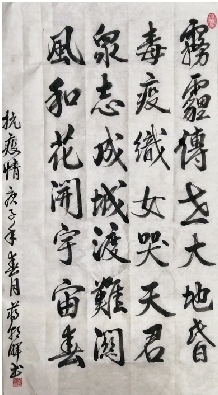 霧霾傳世大地昏
毒疫織女哭天君
衆志成城渡難關
風和花開宇宙春
抗疫情庚子年春月蔣書